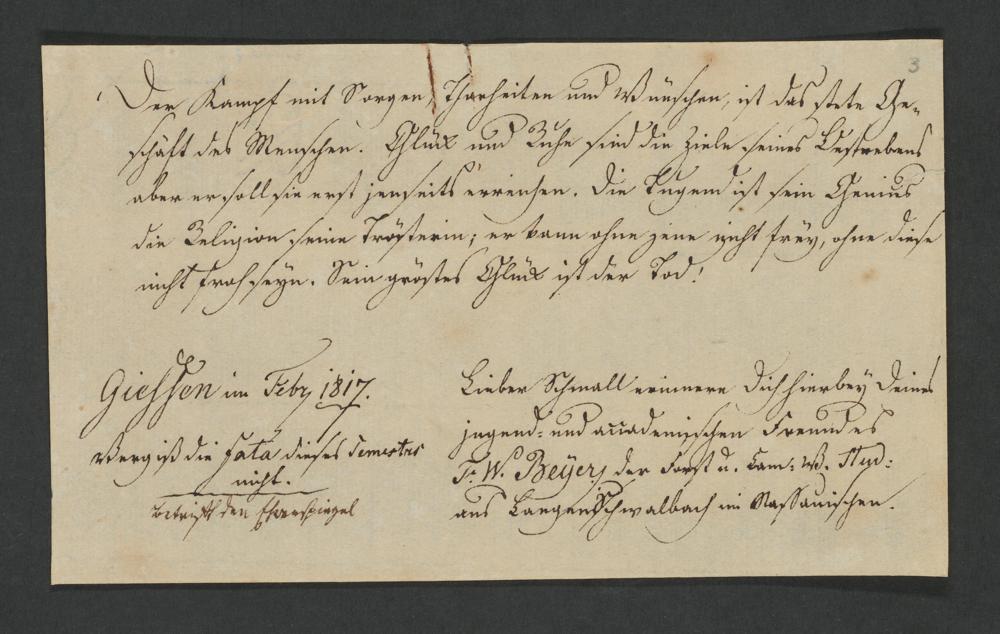 3
Der Kampf mit Sorgen, Thorheiten und Wünschen, ist das stete Ge-
schäft des Menschen. Glück und Ruhe sind die Ziele seines Bestrebens
aber er soll sie erst jenseits erreichen. Die Tugend ist sein Genius
die Religion seine Trösterin; er kann ohne jene nicht frey, ohne diese
nicht froh seyn. Sein gröstes Glück ist der Tod!
Giessen im Febr 1817.
Vergiß die Fata dieses Semesters
nicht.
betrifft den
Lieber Schmall erinnere Dich hierbey Deines
jugend- und accademischen Freundes
F. W. Beyer, der Forst u. Cam: W. Stud:
aus LangenSchwalbach im Nassauischen.